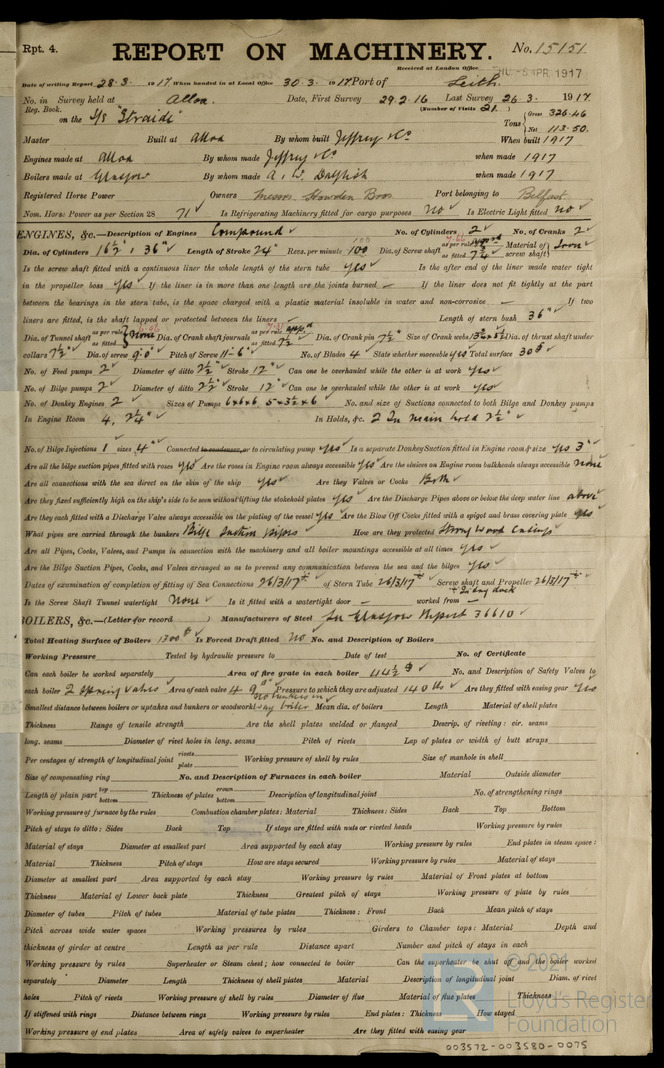 Rpt. 4. REPORT ON MACHINERY. No. 15151
Received at London Office THU-5 APR 1917
Date of writing Report 28.3. 1917 When handed in at Local Office 30.3. 1917 Port of Leith.
No. in Survey held at Alloa. Date, First Survey 29.2.16 Last Survey 26.3. 1917
Reg. Book. (Number of Visits 21.)
on the S/S "Straide" Tons { Gross 326.46
Net 113.50.
Master Built at Alloa By whom built Jeffrey & Co When built 1917
Engines made at Alloa By whom made Jeffrey & Co when made 1917
Boilers made at Glasgow By whom made A. & W. Dalglish when made 1917
Registered Horse Power Owners Messrs. Howden Bros Port belonging to Belfast
Nom. Horse Power as per Section 28 71 Is Refrigerating Machinery fitted for cargo purposes No Is Electric Light fitted No
ENGINES, &c.—Description of Engines Compound No. of Cylinders 2 No. of Cranks 2
Dia. of Cylinders 16½", 36" Length of Stroke 24" Revs. per minute 100 Dia. of Screw shaft as per rule as fitted 7¾" Material of screw shaft Iron
Is the screw shaft fitted with a continuous liner the whole length of the stern tube Yes Is the after end of the liner made water tight
in the propeller boss Yes If the liner is in more than one length are the joints burned — If the liner does not fit tightly at the part
between the bearings in the stern tube, is the space charged with a plastic material insoluble in water and non-corrosive — If two
liners are fitted, is the shaft lapped or protected between the liners — Length of stern bush 36"
Dia. of Tunnel shaft as per rule as fitted None Dia. of Crank shaft journals as per rule as fitted 7½" Dia. of Crank pin 7½" Size of Crank webs Dia. of thrust shaft under
collars 7½" Dia. of screw 9'.0" Pitch of Screw 11'-6" No. of Blades 4 State whether moveable yes Total surface 30
No. of Feed pumps 2 Diameter of ditto 2½" Stroke 12" Can one be overhauled while the other is at work Yes
No. of Bilge pumps 2 Diameter of ditto 2½" Stroke 12" Can one be overhauled while the other is at work Yes
No. of Donkey Engines 2 Sizes of Pumps 6x6x6 5x3½x6 No. and size of Suctions connected to both Bilge and Donkey pumps
In Engine Room 4, 2¼" In Holds, &c. 2 In main hold 2½"
No. of Bilge Injections 1 sizes 4" Connected to condenser, or to circulating pump Yes Is a separate Donkey Suction fitted in Engine room & size Yes 3"
Are all the bilge suction pipes fitted with roses Yes Are the roses in Engine room always accessible Yes Are the sluices on Engine room bulkheads always accessible None
Are all connections with the sea direct on the skin of the ship Yes Are they Valves or Cocks Both
Are they fixed sufficiently high on the ship's side to be seen without lifting the stokehold plates Yes Are the Discharge Pipes above or below the deep water line above
Are they each fitted with a Discharge Valve always accessible on the plating of the vessel Yes Are the Blow Off Cocks fitted with a spigot and brass covering plate Yes
What pipes are carried through the bunkers Bilge Suction Pipes How are they protected Strong Wood Casings
Are all Pipes, Cocks, Valves, and Pumps in connection with the machinery and all boiler mountings accessible at all times Yes
Are the Bilge Suction Pipes, Cocks, and Valves arranged so as to prevent any communication between the sea and the bilges Yes
Dates of examination of completion of fitting of Sea Connections 26/3/17 of Stern Tube 26/3/17 Screw shaft and Propeller 26/3/17
In dry dock
Is the Screw Shaft Tunnel watertight None Is it fitted with a watertight door — worked from —
BOILERS, &c.—(Letter for record ) Manufacturers of Steel In Glasgow Report 36610
Total Heating Surface of Boilers 1300 Is Forced Draft fitted No No. and Description of Boilers
Working Pressure Tested by hydraulic pressure to Date of test No. of Certificate
Can each boiler be worked separately Area of fire grate in each boiler 44½ No. and Description of Safety Valves to
each boiler 2 Spring valves Area of each valve 4.9 Pressure to which they are adjusted 140 lbs Are they fitted with easing gear Yes
Smallest distance between boilers or uptakes and bunkers or woodwork No bunkers in way boiler Mean dia. of boilers Length Material of shell plates
Thickness Range of tensile strength Are the shell plates welded or flanged Descrip. of riveting: cir. seams
long. seams Diameter of rivet holes in long. seams Pitch of rivets Lap of plates or width of butt straps
Per centages of strength of longitudinal joint rivets plate Working pressure of shell by rules Size of manhole in shell
Size of compensating ring No. and Description of Furnaces in each boiler Material Outside diameter
Length of plain part top bottom Thickness of plates crown bottom Description of longitudinal joint No. of strengthening rings
Working pressure of furnace by the rules Combustion chamber plates: Material Thickness: Sides Back Top Bottom
Pitch of stays to ditto: Sides Back Top If stays are fitted with nuts or riveted heads Working pressure by rules
Material of stays Diameter at smallest part Area supported by each stay Working pressure by rules End plates in steam space:
Material Thickness Pitch of stays How are stays secured Working pressure by rules Material of stays
Diameter at smallest part Area supported by each stay Working pressure by rules Material of Front plates at bottom
Thickness Material of Lower back plate Thickness Greatest pitch of stays Working pressure of plate by rules
Diameter of tubes Pitch of tubes Material of tube plates Thickness: Front Back Mean pitch of stays
Pitch across wide water spaces Working pressures by rules Girders to Chamber tops: Material Depth and
thickness of girder at centre Length as per rule Distance apart Number and pitch of stays in each
Working pressure by rules Superheater or Steam chest; how connected to boiler Can the superheater be shut off and the boiler worked
separately Diameter Length Thickness of shell plates Material Description of longitudinal joint Diam. of rivet
holes Pitch of rivets Working pressure of shell by rules Diameter of flue Material of flue plates Thickness
If stiffened with rings Distance between rings Working pressure by rules End plates: Thickness How stayed
Working pressure of end plates Area of safety valves to superheater Are they fitted with easing gear
© 2021
Lloyd's Register
Foundation
003572-003580-0075